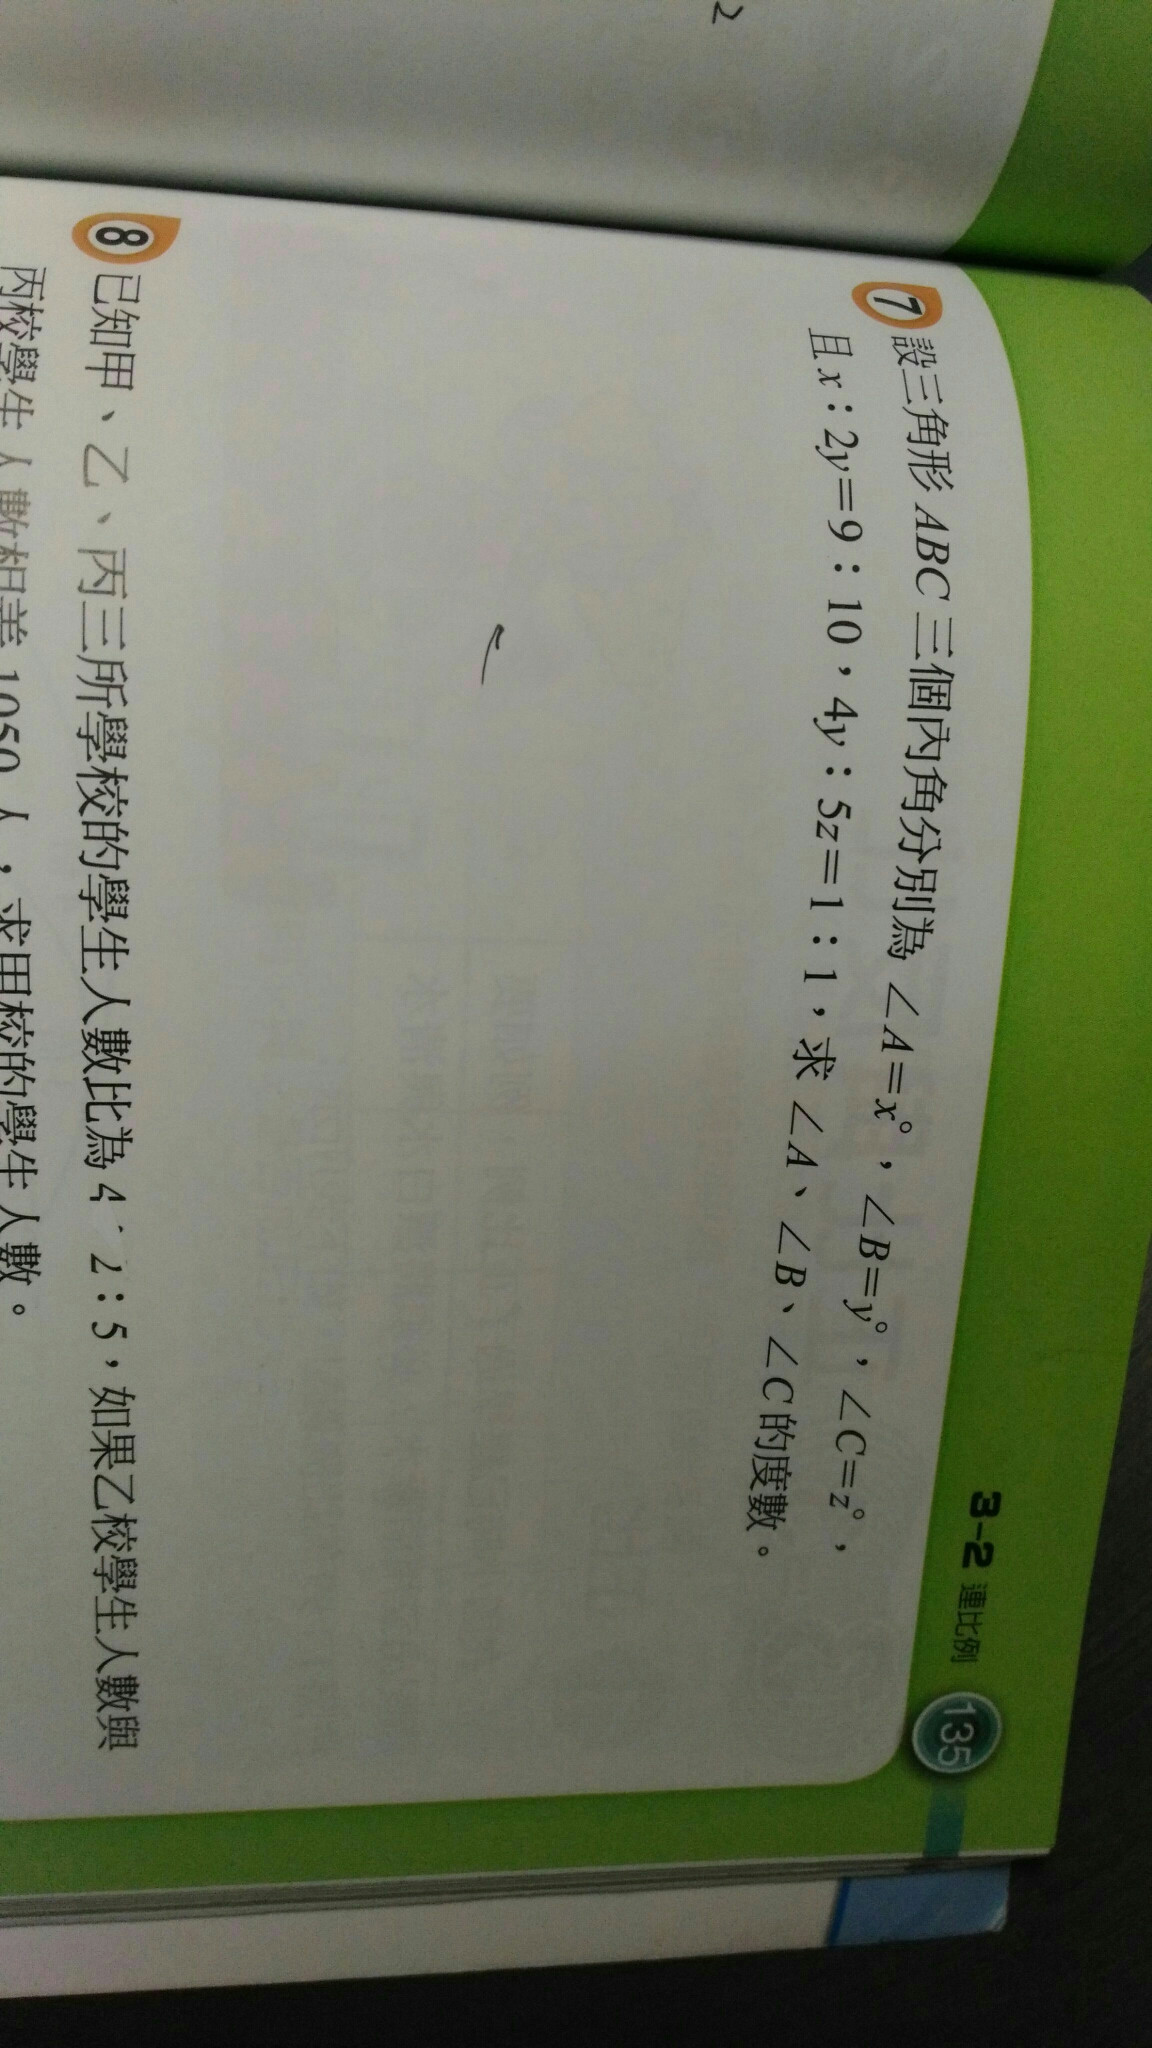 2
3-2 連比例 135
7 設三角形 ABC 三個內角分別為 ∠A=x°,∠B=y°,∠C=z°,
且 x:2y=9:10,4y:5z=1:1,求 ∠A、∠B、∠C的度數。
8 已知甲、乙、丙三所學校的學生人數比為 4:2:5,如果乙校學生人數與
丙校學生人數相差 1050 人,求甲校的學生人數。